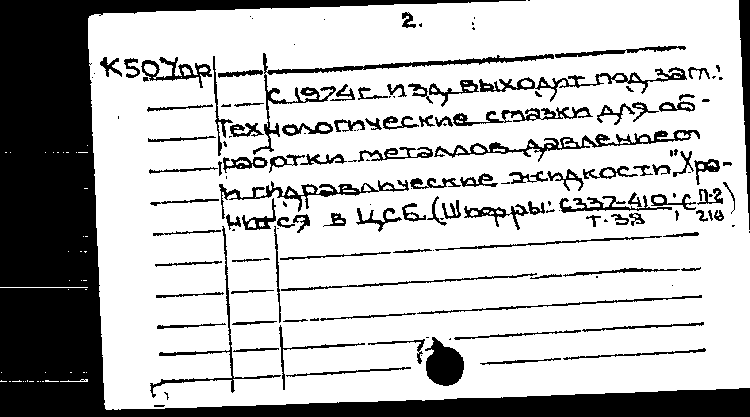 2.
К507пр
С 1974 г. изд. выходит под загл.:
Технологические смазки для об-
работки металлов давлением
и гидравлические жидкости". Хра-
нится в ЦСБ (Шифры: С337-410 ; С П-2)
Т-38 210